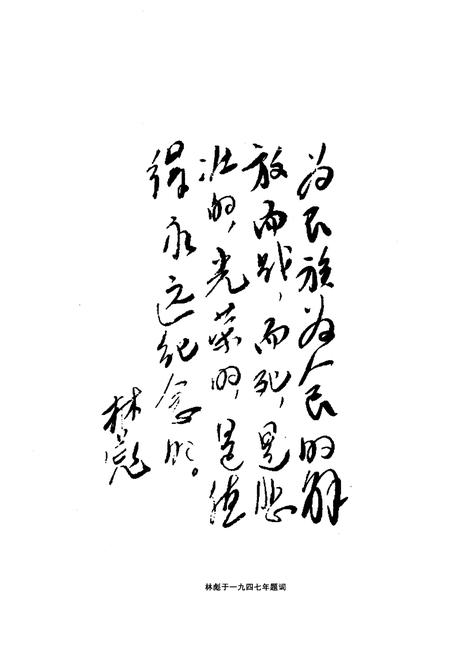 为民族为人民的解
放而战，而死，是悲
壮的，光荣的，是值
得永远纪念的。
林彪
林彪于一九四七年题词